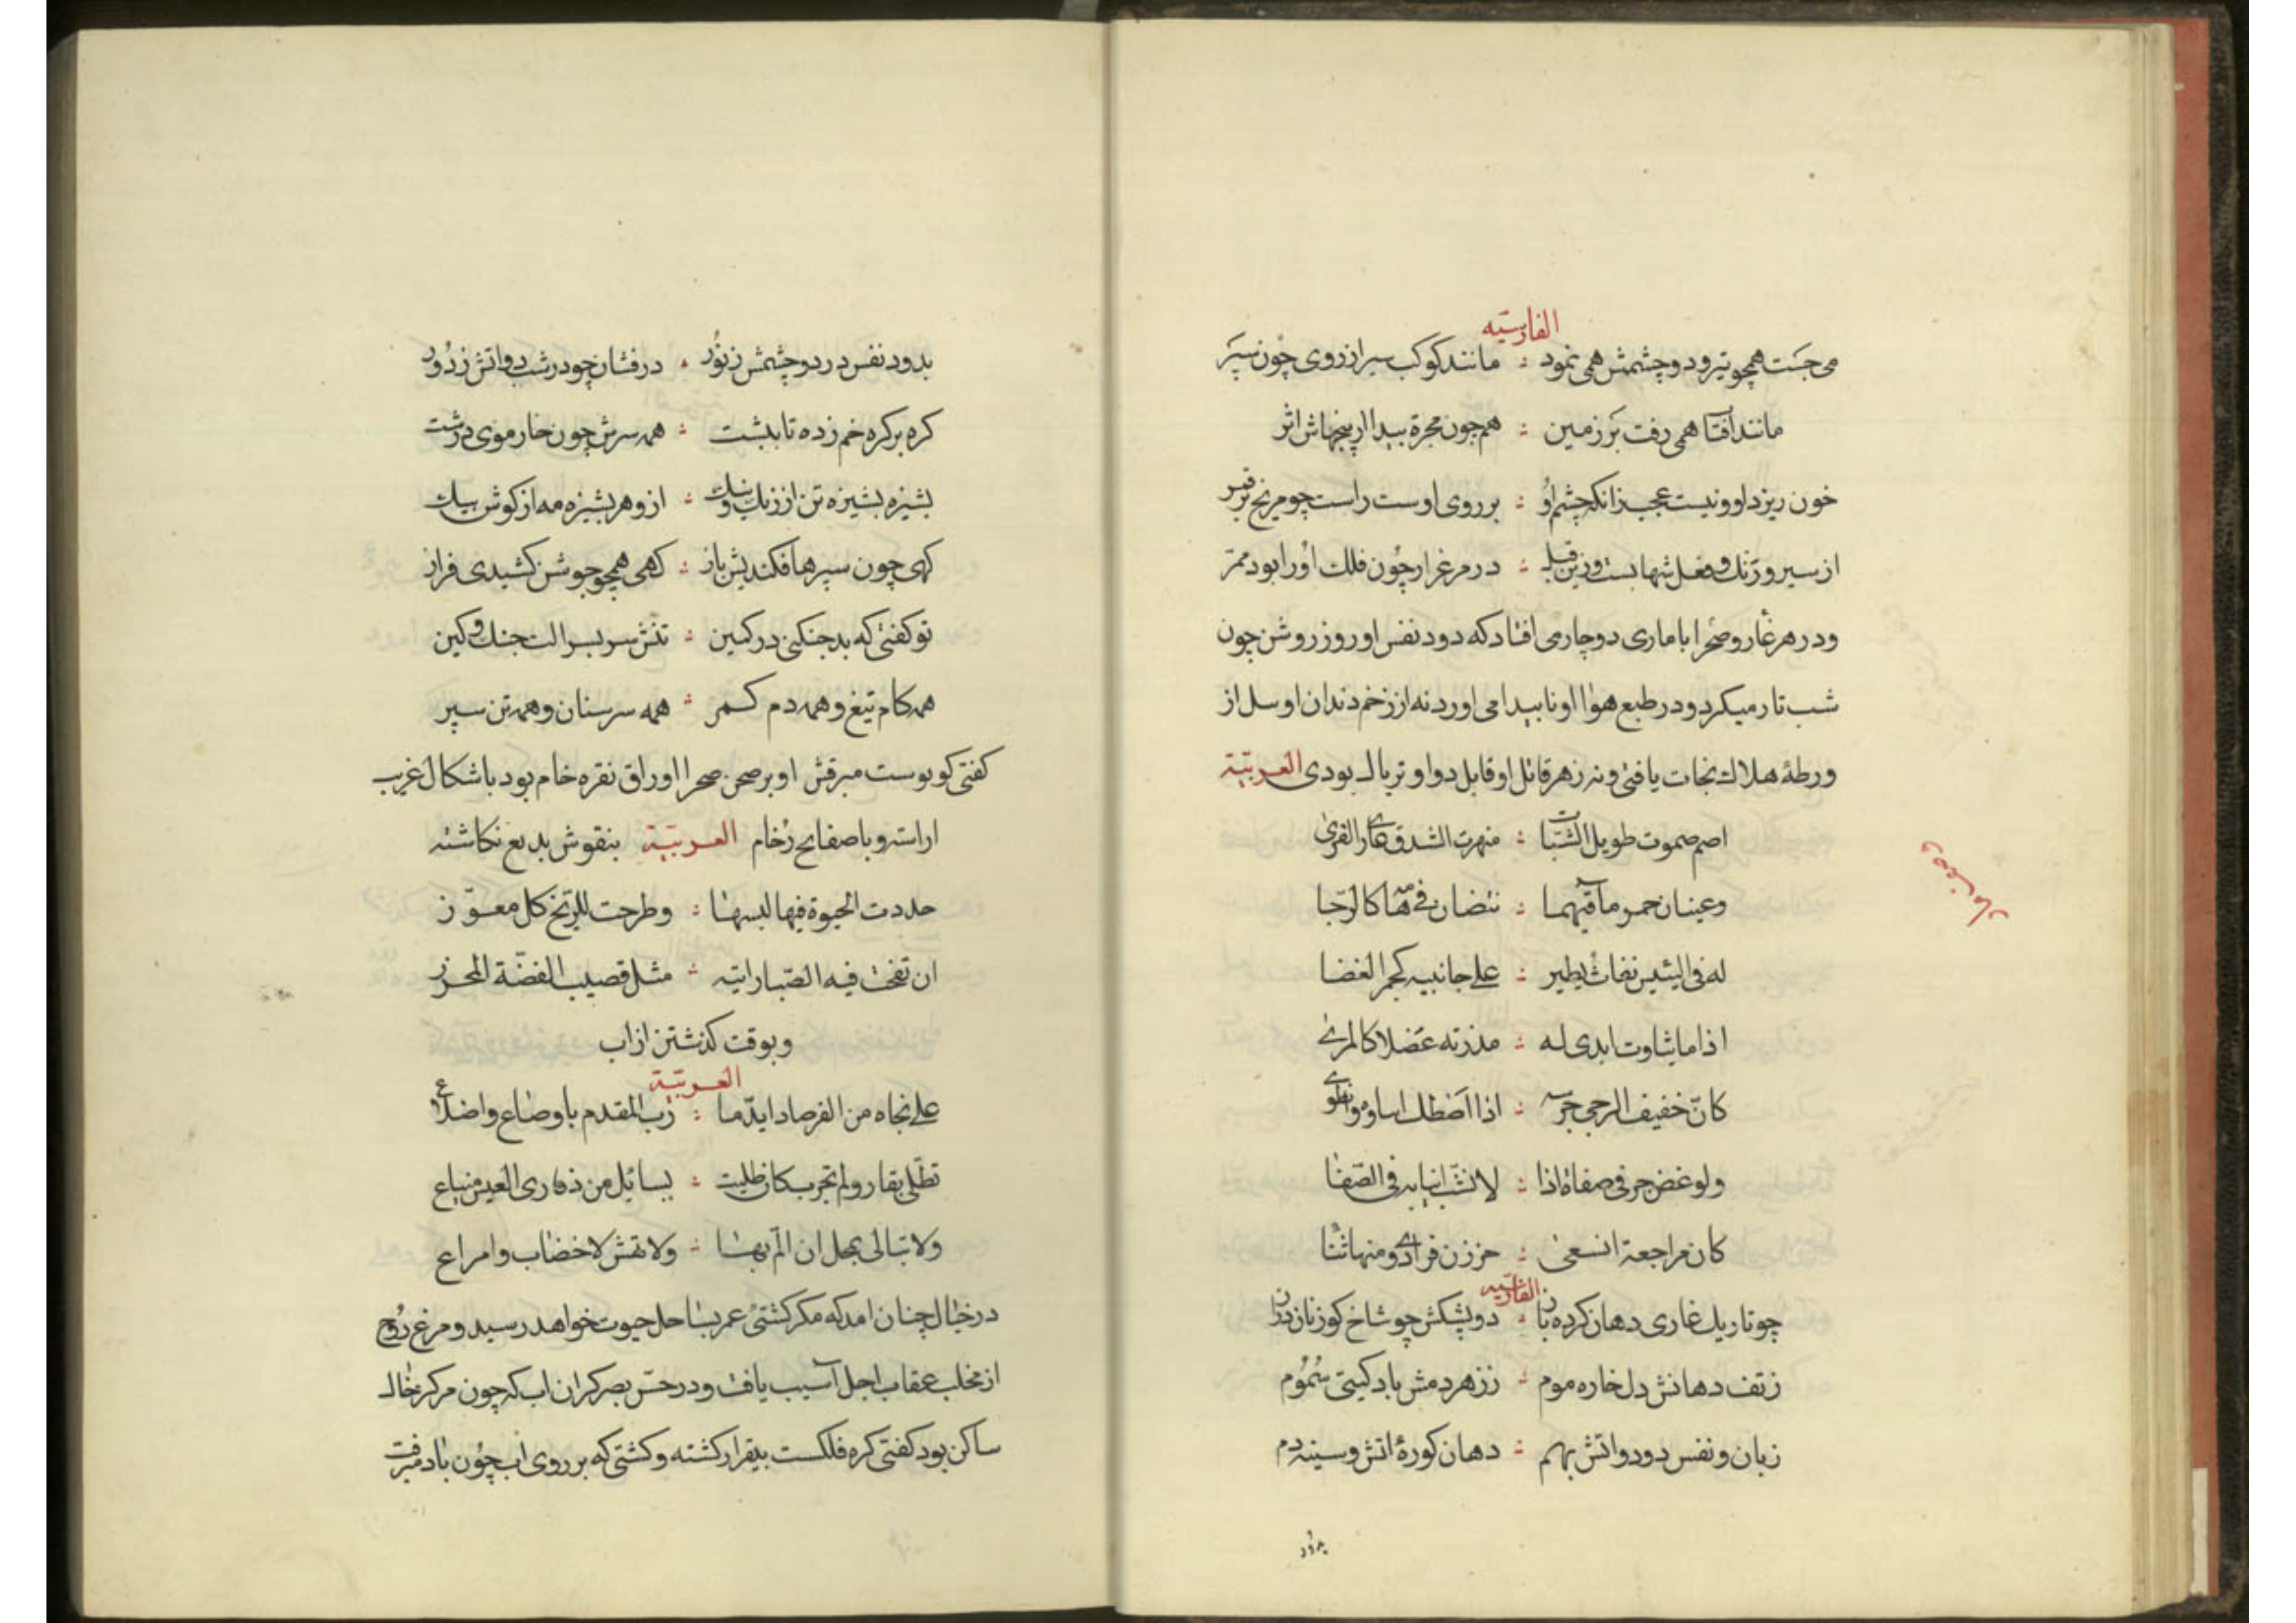 الفارسیّه
می جَست همچو تیر و دو چشمش همی نمود : مانند کوکب سپر از روی چون سپَر
مانند افتا همی رفت بَر زمین : همچون مجرة پیدا از پنجهاش اثر
خون ریزد او و نیست عجب زانکه چشم اوُ : بر روی اوست راست چو مریخ بر قمر
از سیر و رَنك و فعل شهابست وزین قبل : در مرغزار چون فلك اوُرا بود ممرّ
و در هر غار و صحرا با ماری دوچار می افتاد که دود نفس او روز روشن چون
شب تار میکرد و در طبع هوا او نا پیدا می اورد نه از زخم دندان او سل از
ورطهٔ هلاك نجات یافتی و نه زهر قاتل او قابل دوا و تریاك بودی العربیّة
اصم صموت طویل الشبات : منهرت الشدق عاری القری
وعینان حمر مآقیهما : تنضان فی هامة کالرّحا
له فی الیئیس نفاث یطیر : علی جانبیه کجمر الغضا
اذا ما یثاوت ابدی له : مذربه عضلا کالمدی
کانّ خفیف الرحی جرسه : اذا اصطك اساوه وانطوی
ولو غض جر فی صفاة اذا : لانشب انیابه فی الصّفا
کان مراجعة انسعی : حززن فرادی ومنها ثنا
الفارسیّه
چو تاریك غاری دهان کرده باز : دو پشکش چو شاخ کوزنان دراز
ز تف دهانش دل خاره موم : ز زهر دمش باد کیتی سُمُوم
زبان و نفس دود و اتش بهم : دهان کورهٔ اتش و سینه دم
بدود
بدود نفس در دو چشمش ز نوُر : درفشان چو در شب دو اتش ز دُور
کره بر کره خم زده تا بپشت : همه سرش چون خار موی درشت
پشیزه پشیزه تن از رنك و نیك : ازو هر پشیزه مه از کوش پیلك
کهی چون سپرها فکندیش باز : کهی همچو جوشن کشیدی فراز
تو کفتی که بد جنکیی در کمین : تنش سر بسر الت جنك و کین
همه کام تیغ و همه دم کمر : همه سر سنان و همه تن سپر
کفتی کو پوست مبرقش او بر صحن صحرا اوراق نقره خام بود باشکال غریب
اراسته و با صفایح رُخام العربیّة بنقوش بدیع نکاشته
حددت الحیوة فیها لبسها : وطرحت للریّخ کل معوّز
ان تفخت فیه الصّبا رایته : مثل قصیب الفضّة المحرز
و بوقت کذشتن از اب
العربیّة
علی نجاه من الفرصاد ایدّها : رَب المقدم باوصاع واضلاع
تطّلی بقار ولم تجرب کان طلیت : بسائل من ذفاری العیس منباع
ولا تبالی بمحل ان المّ بها : ولا تهش لاخضاب وامراع
در خیال چنان امد که مکر کشتیٔ عمر بساحل حیوت خواهد رسید و مرغ روُح
از مخلب عقاب اجل آسیب یافت و در حسّ بصر کران اب که چون مرکز خاك
ساکن بود کفتی کره فلکست بیقرار کشته و کشتی که بر روی اب چوُن باد میرفت